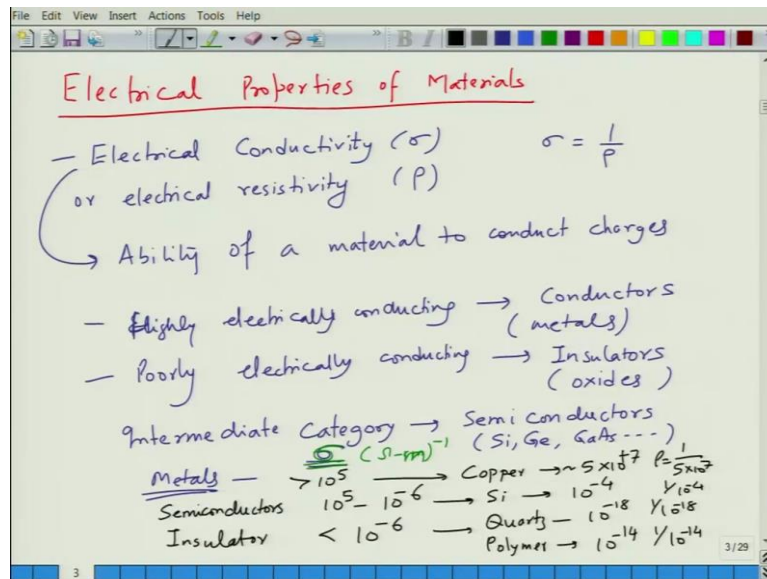 File Edit View Insert Actions Tools Help
Electrical Properties of Materials
— Electrical Conductivity (σ) σ = 1/ρ
or electrical resistivity (ρ)
→ Ability of a material to conduct charges
— Highly electrically conducting → Conductors
(metals)
— Poorly electrically conducting → Insulators
(oxides)
Intermediate Category → Semiconductors
(Si, Ge, GaAs ---)
σ (Ω-m)⁻¹
Metals — > 10⁵ → Copper → ~ 5×10⁺⁷ ρ = 1/5×10⁷
Semiconductors 10⁵ - 10⁻⁶ → Si → 10⁻⁴ 1/10⁻⁴
Insulator < 10⁻⁶ → Quartz — 10⁻¹⁸ 1/10⁻¹⁸
Polymer → 10⁻¹⁴ 1/10⁻¹⁴
3/29
3